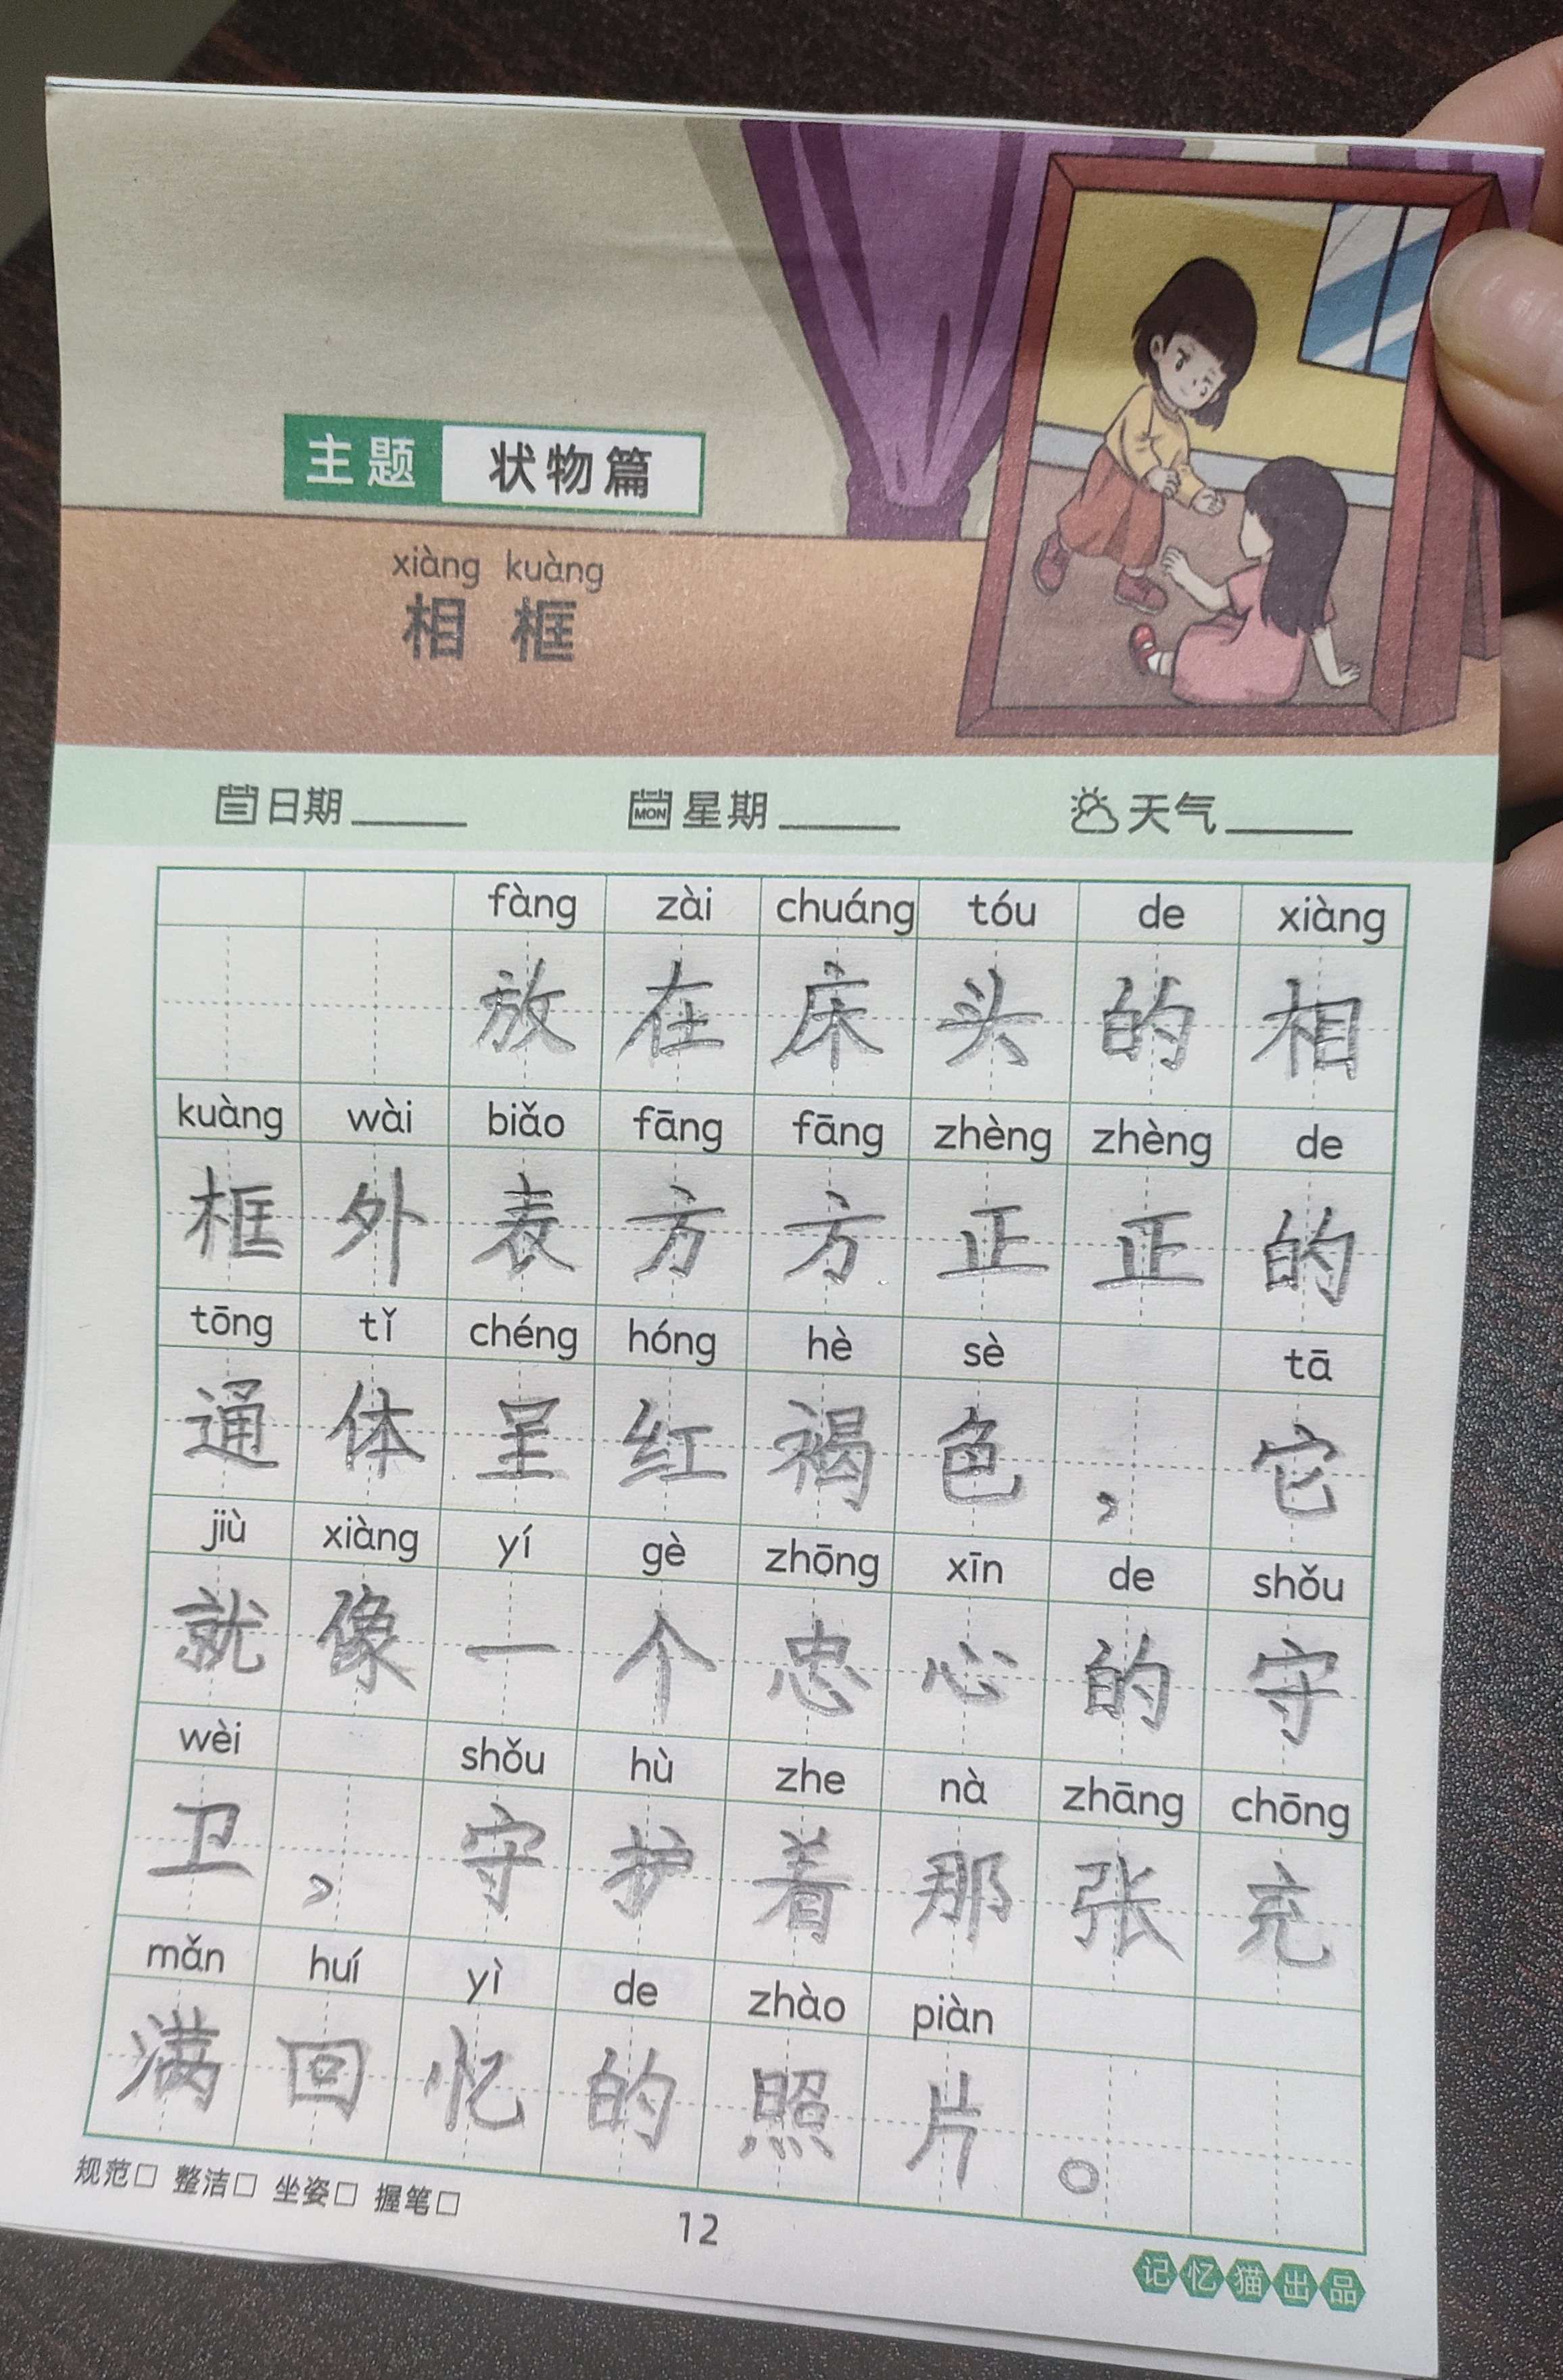 主题 状物篇
xiàng kuàng
相框
日期 MON 星期 天气
fàng zài chuáng tóu de xiàng
放在床头的相
kuàng wài biǎo fāng fāng zhèng zhèng de
框外表方方正正的
tōng tǐ chéng hóng hè sè tā
通体呈红褐色，它
jiù xiàng yí gè zhōng xīn de shǒu
就像一个忠心的守
wèi shǒu hù zhe nà zhāng chōng
卫，守护着那张充
mǎn huí yì de zhào piàn
满回忆的照片。
规范□ 整洁□ 坐姿□ 握笔□
12
记忆猫出品